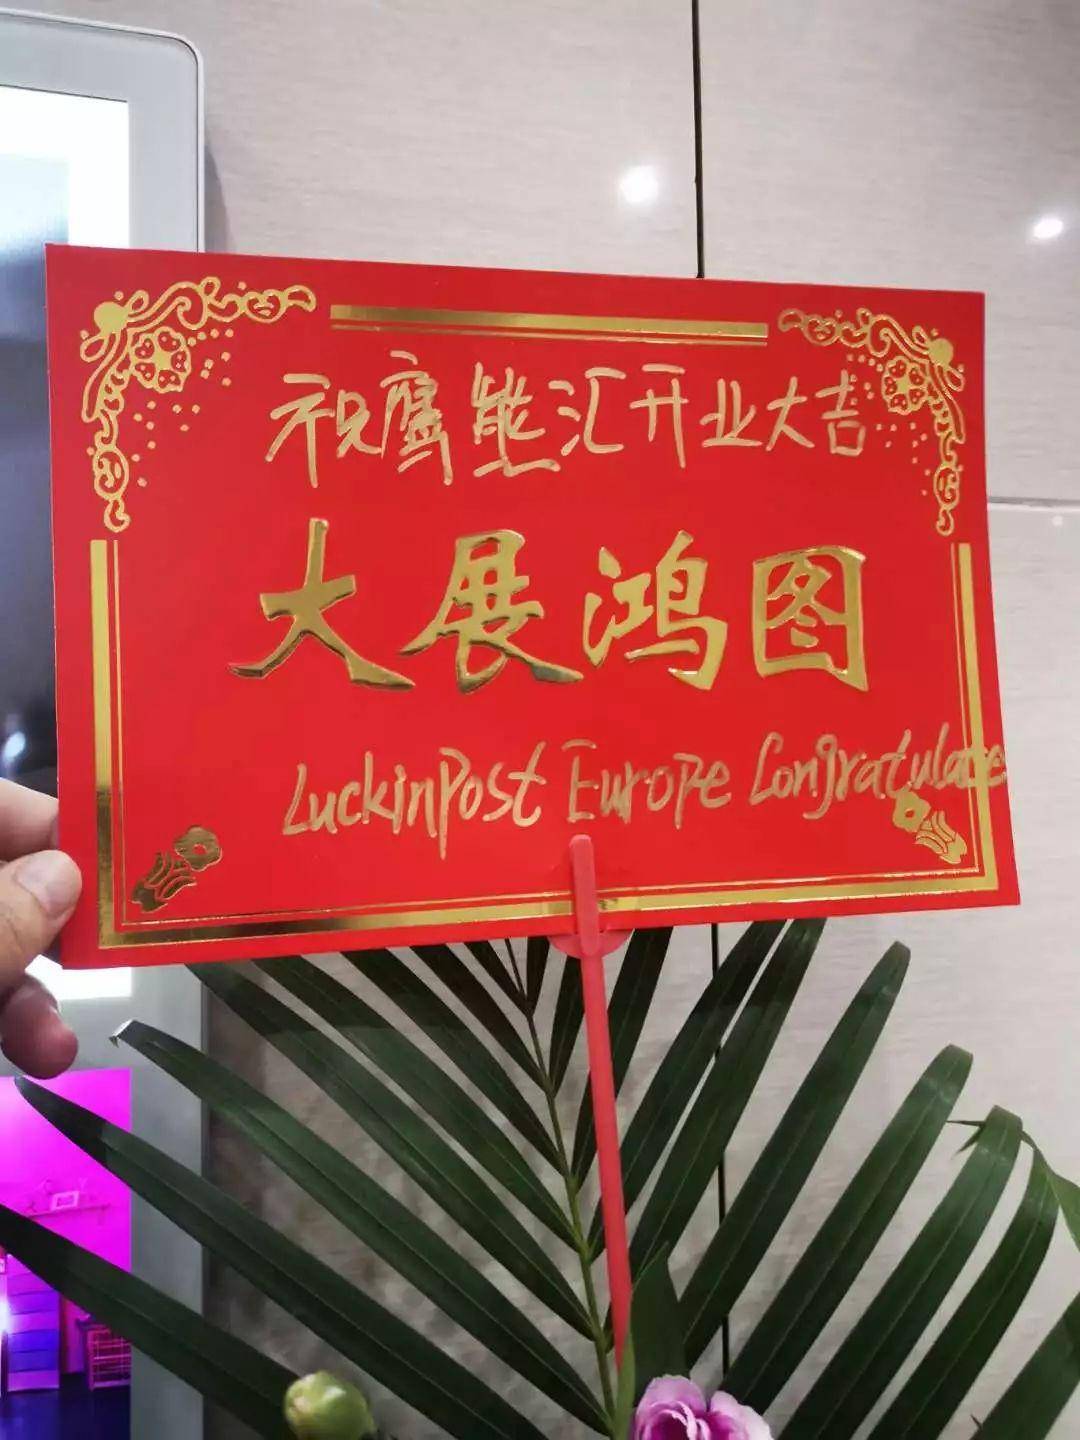 祝鹰熊汇开业大吉
大展鸿图
LuckinPost Europe Congratulate